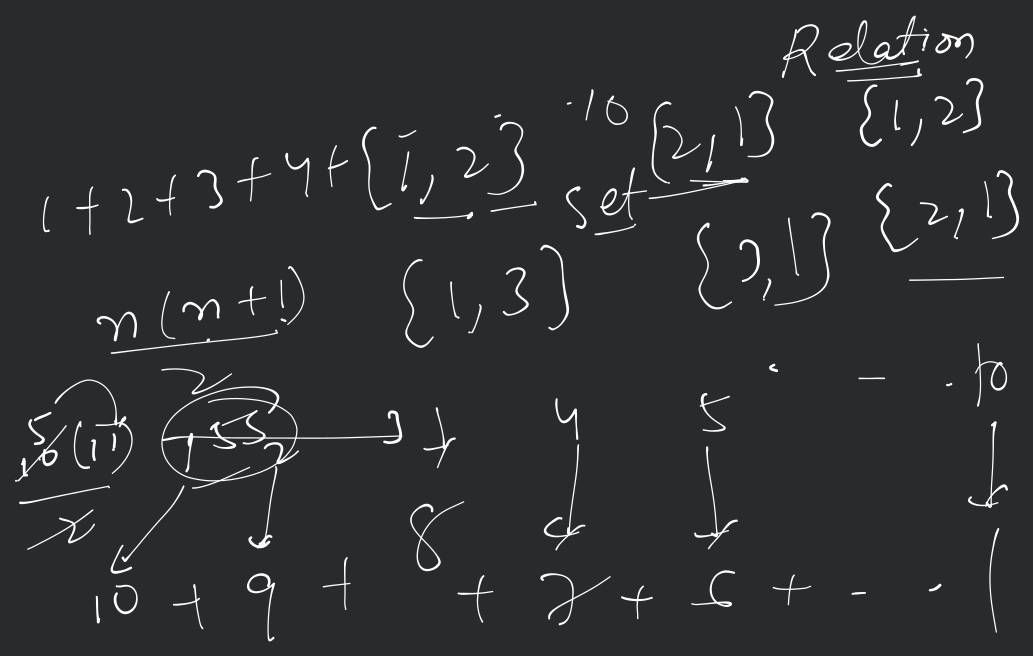 Relation
1+2+3+4+{1,2} ..10 {2,1} {1,2}
set
{1,3} {2,1} {2,1}
n(n+1)
2
5
10(11) 55
2
1 2 3 + 4 5 . - . 10
10 + 9 + 8 + 7 + 6 + - . 1